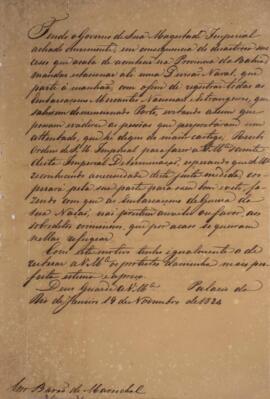 Tendo o Governo de Sua Magestade Imperial
achado conveniente, em consequencia do desastroso suc
cesso que acaba de acontecer na Provincia da Bahia,
mandar estacionar ali uma Divisão Naval, que
parte á manhãa, com o fim de registar todas as
embarcaçoens Mercantes Nacionaes e Estrangeiras, que
sahirem do mencionado Porto, evitando assim que
possam evadir-se os que perpetraram um
attentado, que he digno do maior castigo, Recebi
Ordem de S. M. Imperial para fazer a V. M.ce sciente
desta Imperial Determinação, esperando que V. M.ce
reconhecendo a necessidade desta justa medida, coo
perará pela sua parte para o seu bom exito, fa
zendo com que as embarcaçoens de Guerra da
Sua Nação, não prestem auxilio ou favor aos
sobreditos criminosos, que por acaso se queiram
nellas refugiar.
Com este motivo tenho igualmente o de
reiterar a V. M.ce os protestos da minha mais per
feita estima e apreço.
Deus Guarde a V. M.ce Palacio do
Rio de Janeiro 18 de Novembro de 1824
Snr Barão de Mareschal